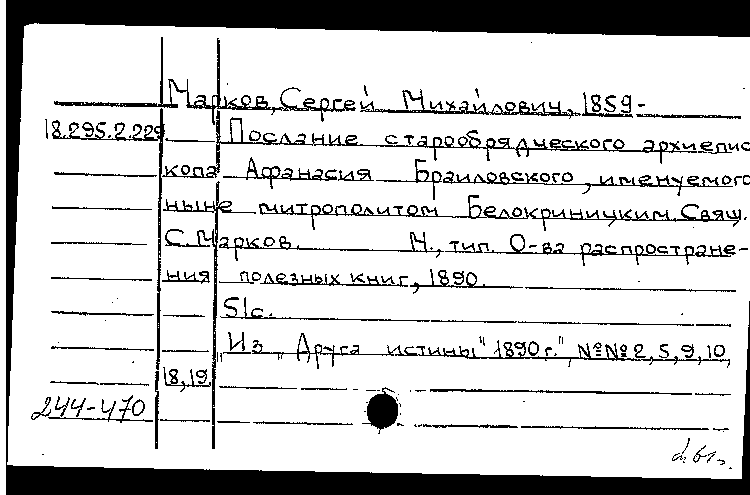 Марков, Сергей Михайлович, 1859-
18.295.2.229. Послание старообрядческого архиепис
копа Афанасия Браиловского, именуемого
ныне митрополитом Белокриницким. Свящ.
С. Марков. М., тип. О-ва распростране-
ния полезных книг, 1890.
51с.
Из „Друга истины" 1890 г.", №№ 2, 5, 9, 10,
18, 19.
244-470